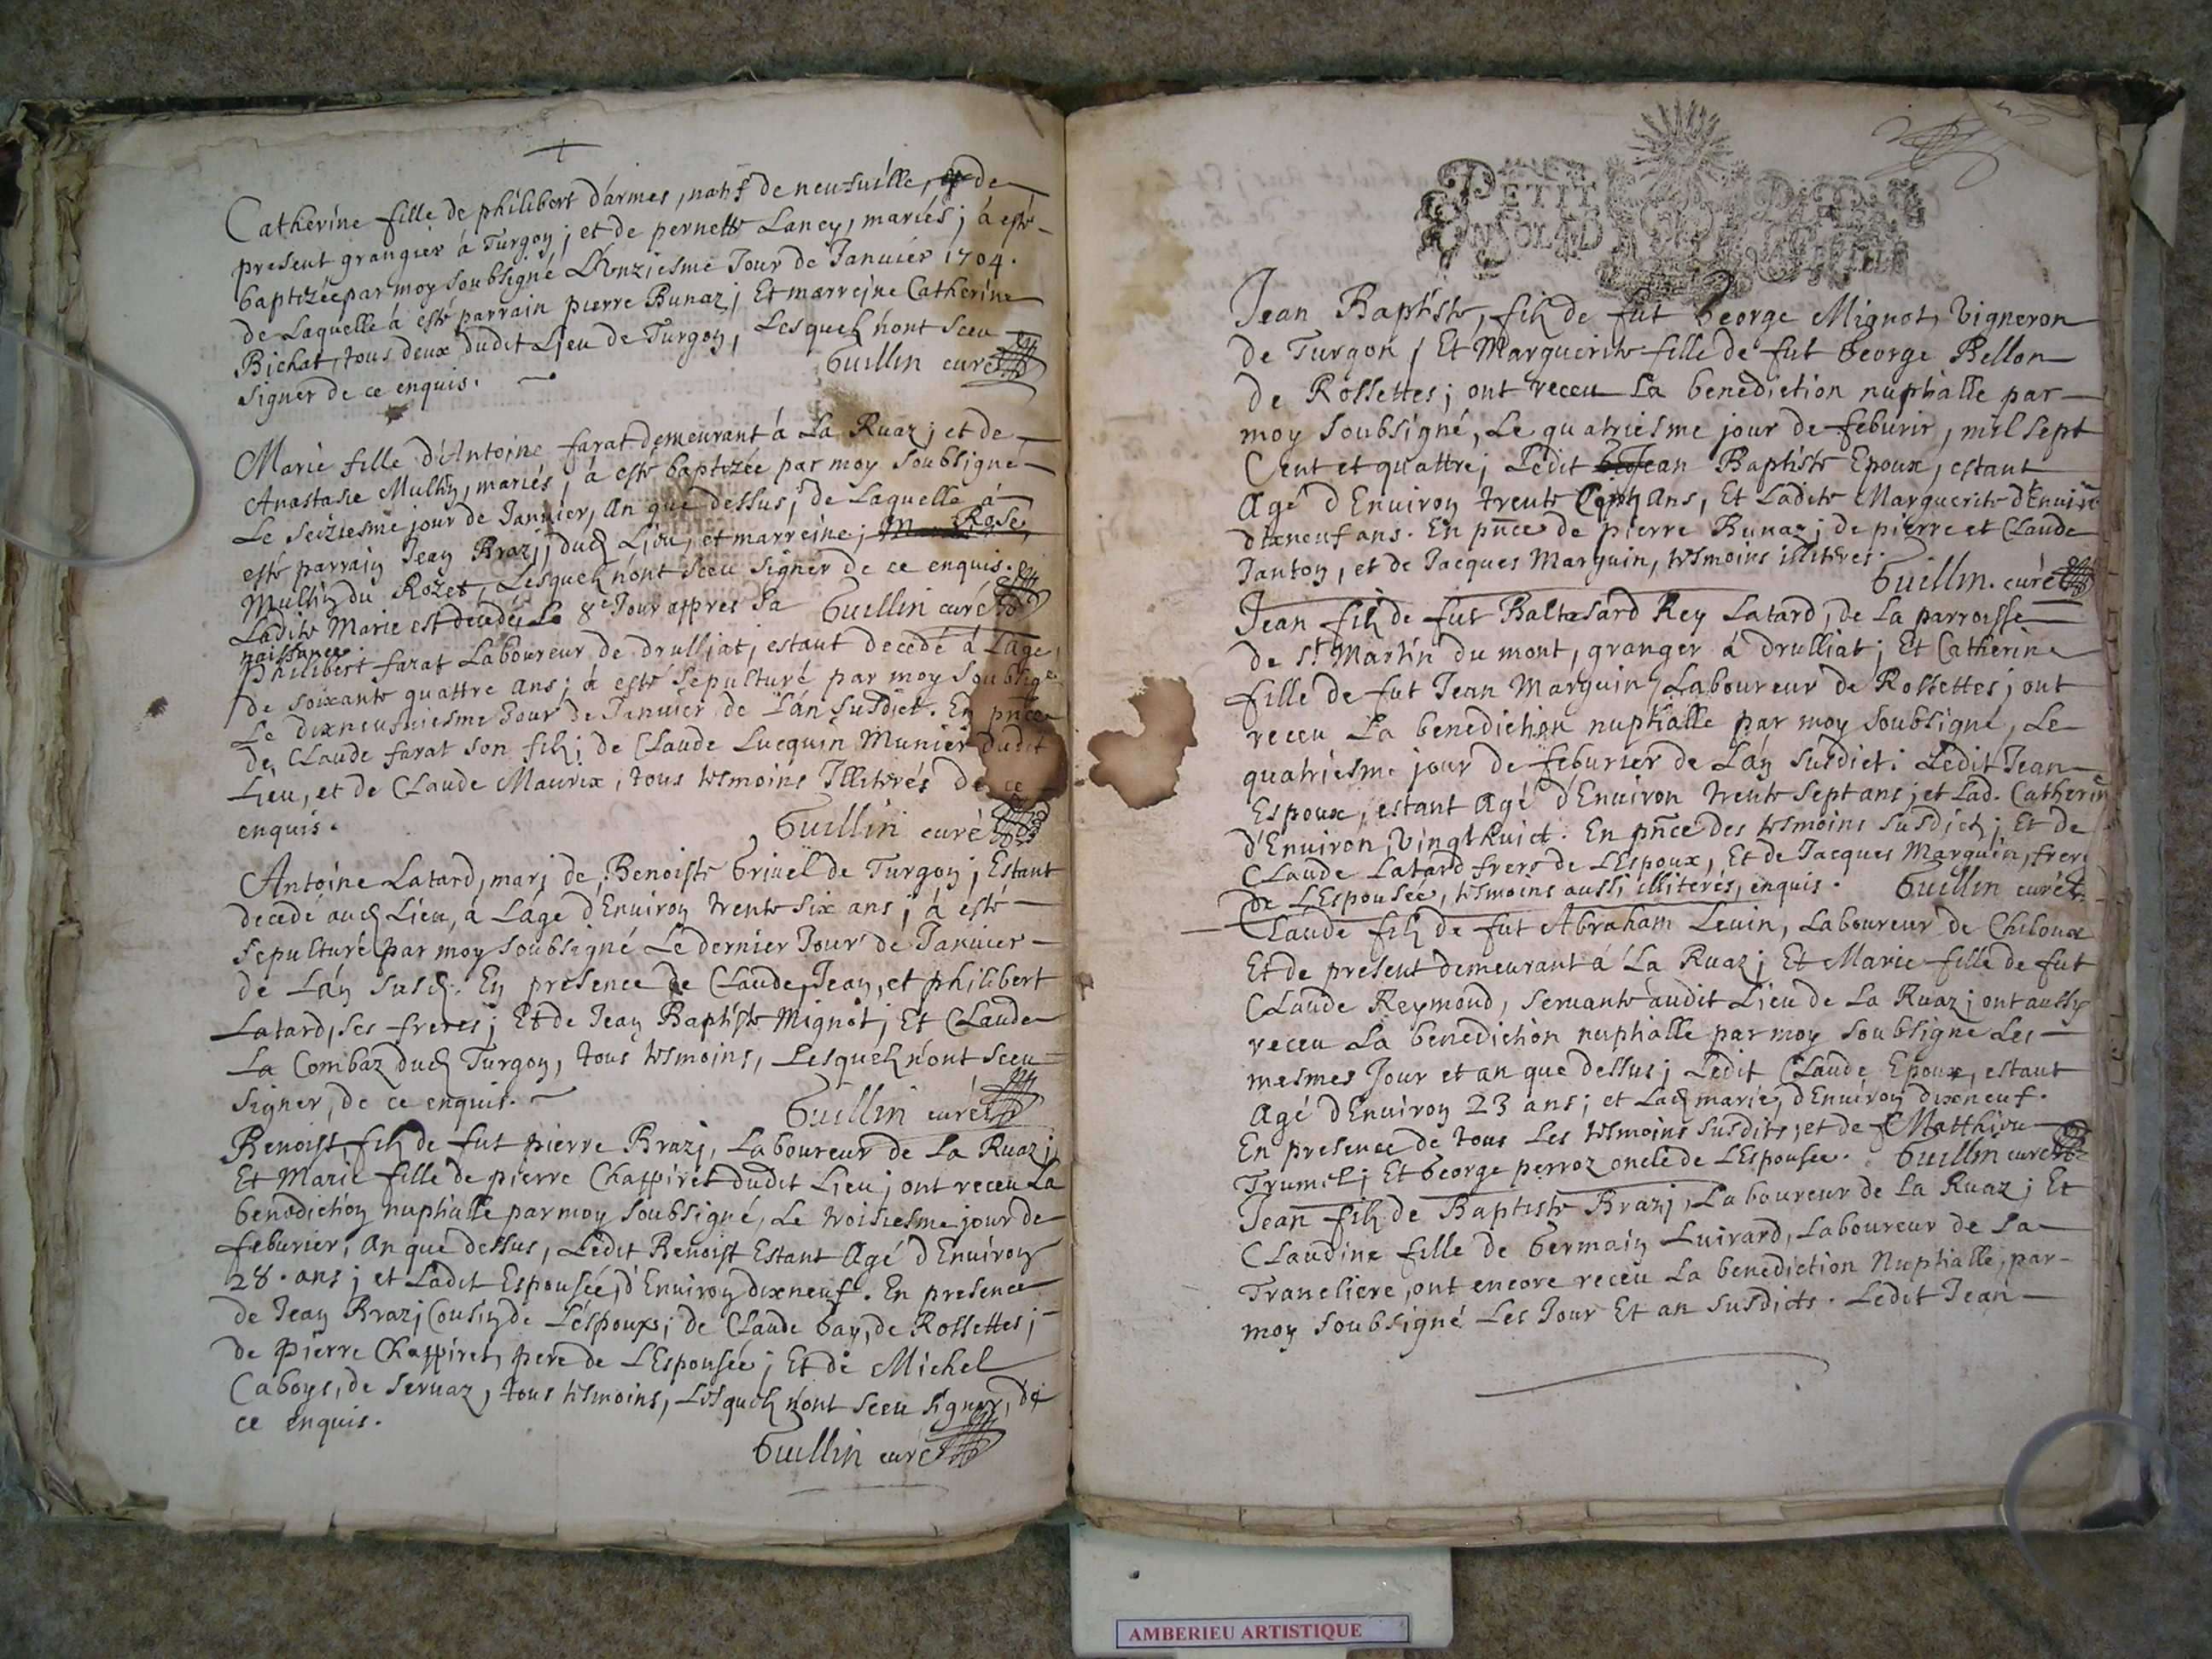 Catherine fille de philibert d'armes, natif de neufuille, et de
present grangier à Turgon; et de pernette Lancy, mariés; à esté
baptizée par moy soubsigné L'honziesme Jour de Januier 1704.
de Laquelle à esté parrain pierre Bunaz; Et marreine Catherine
Bichat, tous deux dudit Lieu de Turgon, Lesquelz n'ont sceu
signer de ce enquis.
Guillin curé
Marie fille d'Antoine farat demeurant à La Ruaz; et de
Anastasie Mullin, mariés, à esté baptizée par moy soubsigné
Le seiziesme jour de Januier, an que dessus; de Laquelle à
esté parrain Jean Brazj, dud Lieu, et marreine; Rose,
Mullin du Rozet, Lesquelz n'ont sceu signer de ce enquis.
Ladite Marie est decedée Le 8e Jour appres sa
naissance.
Guillin curé
Philibert farat Laboureur de drulliat, estant decedé à L'age,
de soixante quattre ans; à esté sepulturé par moy soubsigé
Le dixneufuiesme Jour de Januier de L'an susdict. En pnce
de Claude farat son filz; de Claude Lucquin Munier dudit
Lieu, et de Claude Maurix, tous tesmoins Illiterés de ce
enquis.
Guillin curé
Antoine Latard, marj de Benoiste Griuel de Turgon; Estant
decedé aud Lieu, à L'age d'Enuiron trente six ans; à esté
sepulturé par moy soubsigné Le dernier Jour de Januier
de L'an susd. En presence de Claude, Jean, et philibert
Latard, ses freres; Et de Jean Baptiste Mignot; Et Claude
La Combaz dud Turgon, tous tesmoins, Lesquelz n'ont sceu
signer, de ce enquis.
Guillin curé
Benoist, filz de fut pierre Brazj, Laboureur de La Ruaz;
Et Marie fille de pierre Chappiret dudit Lieu; ont receu La
benediction nuptialle par moy soubsigné, Le troisiesme jour de
feburier, an que dessus, Ledit Benoist Estant Agé d'Enuiron
28. ans; et Ladit Espousée, d'Enuiron dixneuf. En presence
de Jean Brazj Cousin de L'espoux; de Claude Gay, de Rossettes;
de Pierre Chappiret, pere de L'Espousée; Et de Michel
Caboys, de seruaz, tous tesmoins, Lesquelz n'ont sceu signer, de
ce enquis.
Guillin curé
PETIT
Jean Baptiste, filz de fut George Mignot, Vigneron
de Turgon; Et Marguerite fille de fut George Bellon
de Rossettes; ont receu La benediction nuptialle par
moy soubsigné, Le quatriesme jour de feburir, mil sept
Cent et quattre; Ledit Jean Baptiste Epoux, estant
Agé d'Enuiron trente Cinq ans, Et Ladite Marguerite d'Enuiron
dixneuf ans. En pnce de pierre Bunaz; de pierre et Claude
Janton, et de Jacques Marguin, tesmoins illiteres.
Guillin. curé
Jean filz de fut Baltasard Rey Latard, de La parroisse
de St Martin du mont, granger à drulliat; Et Catherine
fille de fut Jean Marguin, Laboureur de Rossettes; ont
receu La benediction nuptialle par moy soubsigné, Le
quatriesme jour de feburier de L'an susdict: Ledit Jean
Espoux, estant Agé d'Enuiron trente sept ans; et Lad. Catherine
d'Enuiron, Vingt huict. En pnce des tesmoins susdictz; Et de
Claude Latard frere de L'Espoux, Et de Jacques Marguin, frere
de L'Espousée, tesmoins aussi illiterés, enquis.
Guillin curé
Claude filz de fut Abraham Leuin, Laboureur de Chiloux
Et de present demeurant à La Ruaz; Et Marie fille de fut
Claude Reymond, seruante audit Lieu de La Ruaz; ont aussy
receu La benediction nuptialle par moy soubsigné Les
mesmes Jour et an que dessus; Ledit Claude Epoux, estant
Agé d'Enuiron 23 ans; et Lad marie, d'Enuiron dixneuf.
En presence de tous Les tesmoins susdits; et de Matthieu
Trumel; Et George perroz oncle de L'Espousée.
Guillin curé
Jean filz de Baptiste Brazj, Laboureur de La Ruaz; Et
Claudine fille de Germain Luirard, Laboureur de La
Trancliere, ont encore receu La benediction Nuptialle, par
moy soubsigné Les Jour Et an susdicts. Ledit Jean
AMBERIEU ARTISTIQUE